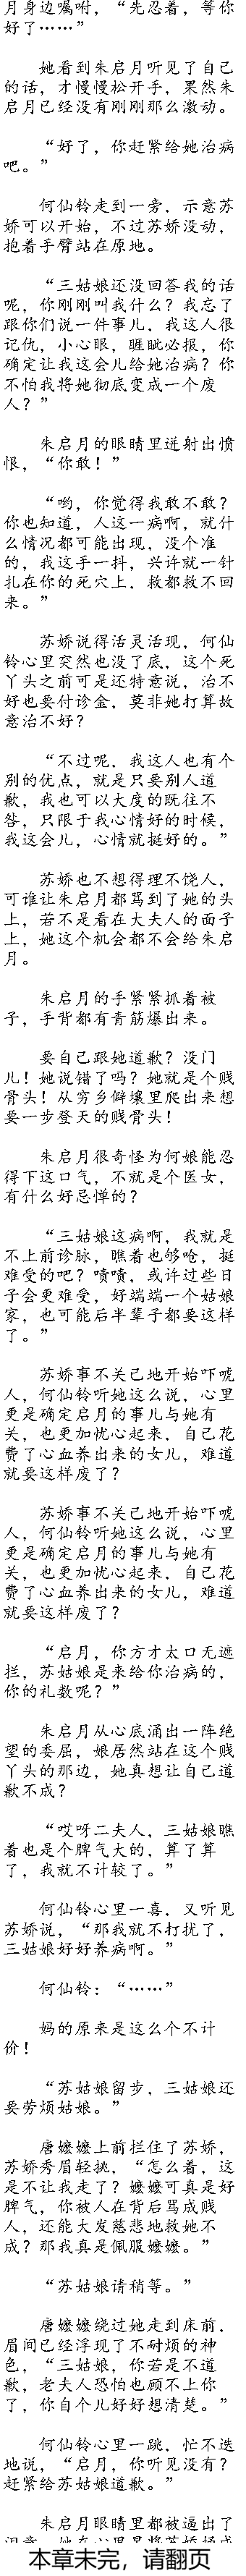 月身边嘱咐，“先忍着，等你
好了……”
她看到朱启月听见了自己
的话，才慢慢松开手，果然朱
启月已经没有刚刚那么激动。
“好了，你赶紧给她治病
吧。”
何仙铃走到一旁，示意苏
娇可以开始，不过苏娇没动，
抱着手臂站在原地。
“三姑娘还没回答我的话
呢，你刚刚叫我什么？我忘了
跟你们说一件事儿，我这人很
记仇，小心眼，睚眦必报，你
确定让我这会儿给她治病？你
不怕我将她彻底变成一个废
人？”
朱启月的眼睛里迸射出愤
恨，“你敢！”
“哟，你觉得我敢不敢？
你也知道，人这一病啊，就什
么情况都可能出现，没个准
的，我这手一抖，兴许就一针
扎在你的死穴上，救都救不回
来。”
苏娇说得活灵活现，何仙
铃心里突然也没了底，这个死
丫头之前可是还特意说，治不
好也要付诊金，莫非她打算故
意治不好？
“不过呢，我这人也有个
别的优点，就是只要别人道
歉，我也可以大度的既往不
咎，只限于我心情好的时候，
我这会儿，心情就挺好的。”
苏娇也不想得理不饶人，
可谁让朱启月都骂到了她的头
上，若不是看在大夫人的面子
上，她这个机会都不会给朱启
月。
朱启月的手紧紧抓着被
子，手背都有青筋爆出来。
要自己跟她道歉？没门
儿！她说错了吗？她就是个贱
骨头！从穷乡僻壤里爬出来想
要一步登天的贱骨头！
朱启月很奇怪为何娘能忍
得下这口气，不就是个医女，
有什么好忌惮的？
“三姑娘这病啊，我就是
不上前诊脉，瞧着也够呛，挺
难受的吧？啧啧，或许过些日
子会更难受，好端端一个姑娘
家，也可能后半辈子都要这样
了。”
苏娇事不关己地开始吓唬
人，何仙铃听她这么说，心里
更是确定启月的事儿与她有
关，也更加忧心起来，自己花
费了心血养出来的女儿，难道
就要这样废了？
苏娇事不关己地开始吓唬
人，何仙铃听她这么说，心里
更是确定启月的事儿与她有
关，也更加忧心起来，自己花
费了心血养出来的女儿，难道
就要这样废了？
“启月，你方才太口无遮
拦，苏姑娘是来给你治病的，
你的礼数呢？”
朱启月从心底涌出一阵绝
望的委屈，娘居然站在这个贱
丫头的那边，她真想让自己道
歉不成？
“哎呀二夫人，三姑娘瞧
着也是个脾气大的，算了算
了，我就不计较了。”
何仙铃心里一喜，又听见
苏娇说，“那我就不打扰了，
三姑娘好好养病啊。”
何仙铃：“……”
妈的原来是这么个不计
价！
“苏姑娘留步，三姑娘还
要劳烦姑娘。”
唐嬷嬷上前拦住了苏娇，
苏娇秀眉轻挑，“怎么着，这
是不让我走了？嬷嬷可真是好
脾气，你被人在背后骂成贱
人，还能大发慈悲地救她不
成？那我真是佩服嬷嬷。”
“苏姑娘请稍等。”
唐嬷嬷绕过她走到床前，
眉间已经浮现了不耐烦的神
色，“三姑娘，你若是不道
歉，老夫人恐怕也顾不上你
了，你自个儿好好想清楚。”
何仙铃心里一跳，忙不迭
地说，“启月，你听见没有？
赶紧给苏姑娘道歉。”
朱启月眼睛里都被逼出了
本章未完，请翻页